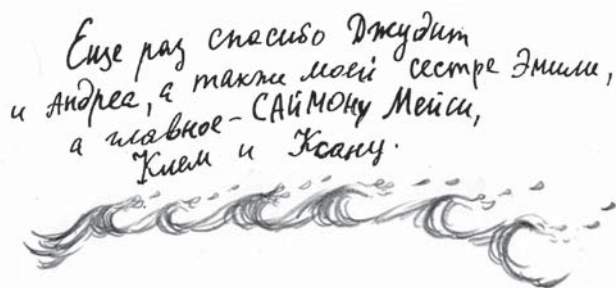 Еще раз спасибо Джудит
и Андреа, а также моей сестре Эмили,
а главное - САЙМОНу Мейси,
Клем и Ксану.